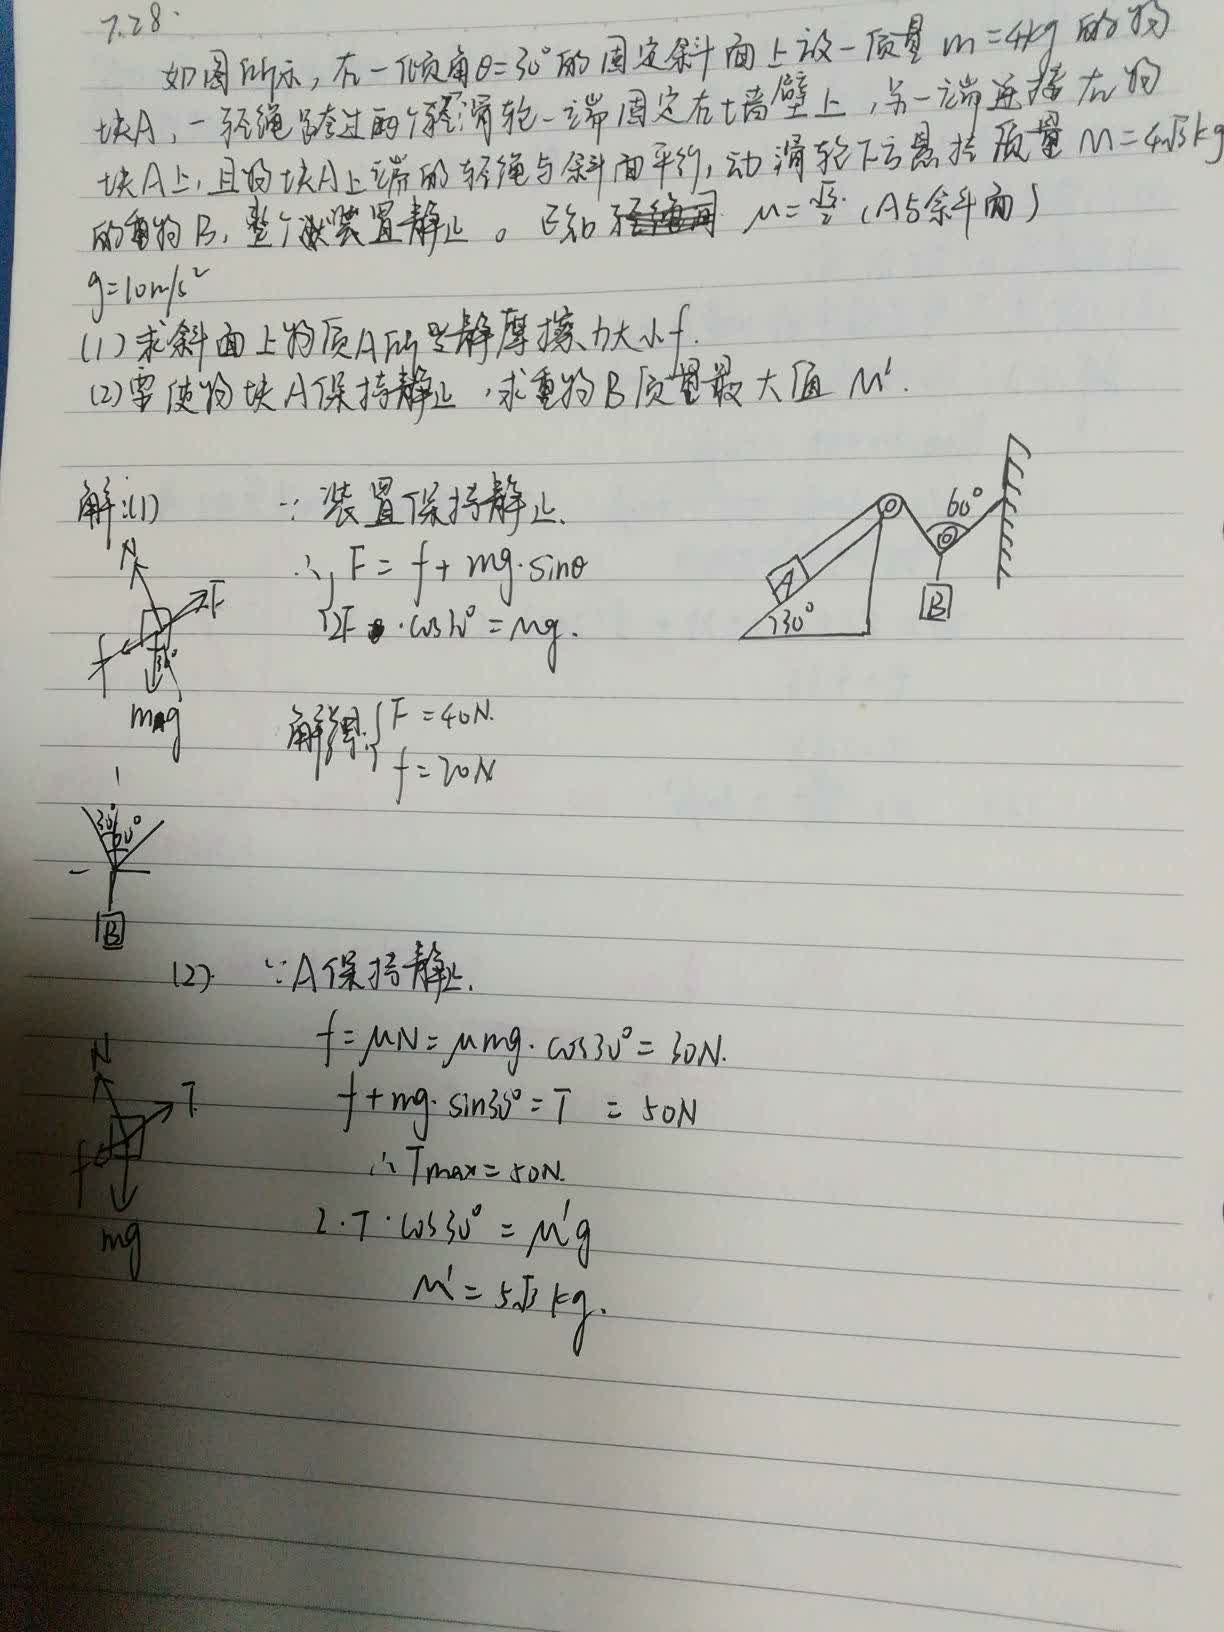 7.28.
如图所示，在一倾角θ=30°的固定斜面上放一质量 m=4kg 的物
块A，一轻绳跨过两个轻滑轮一端固定在墙壁上，另一端连接在物
块A上，且物块A上端的轻绳与斜面平行，动滑轮下方悬挂质量 M=4√3kg
的重物B，整个装置静止。已知 μ=√3/2.(A与斜面)
g=10m/s²
(1)求斜面上物质A所受静摩擦力大小f.
(2)需使物块A保持静止，求重物B质量最大值 M'.
解:(1) ∵装置保持静止.
∴{F=f+mg·sinθ
2F·cos30°=Mg.
解得:{F=40N.
f=20N
N
F
f
30°
mg
A
30°
60°
B
30°
60°
B
(2) ∵A保持静止.
f=μN=μmg·cos30°=30N.
f+mg·sin30°=T =50N
∴Tmax=50N.
2·T·cos30°=M'g
M'=5√3kg.
N
T
f
mg